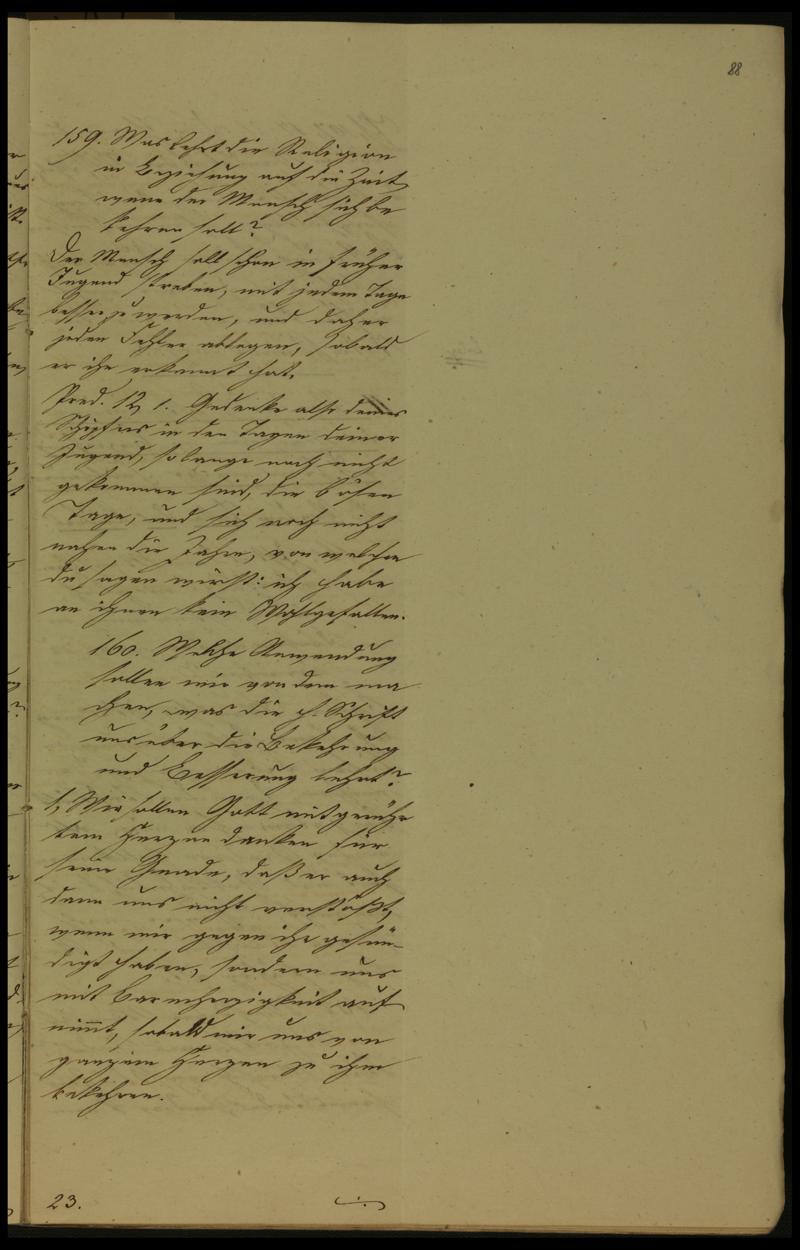 88
159. Was lehrt die Religion
in Beziehung auf die Zeit,
wenn der Mensch sich be
kehren soll?
Der Mensch soll schon in früher
Jugend streben, mit jedem Tage
besser zu werden, und daher
jeden Fehler ablegen, sobald
er ihn erkannt hat.
Pred. 12, 1. Gedenke also deines
Schöpfers in den Tagen deiner
Jugend, so lange noch nicht
gekommen sind, die bösen
Tage, und sich noch nicht
nahen die Jahre, von welchen
du sagen wirst: ich habe
an ihnen kein Wohlgefallen.
160. Welche Anwendung
sollen wir von dem ma
chen, was die h. Schrift
uns über die Bekehrung
und Besserung lehrt?
1, Wir sollen Gott mit gerühr
tem Herzen danken für
seine Gnade, daß er auch
dann uns nicht verstößt,
wenn wir gegen ihn gesün-
digt haben, sondern uns
mit Barmherzigkeit auf
nimmt, sobald wir uns von
ganzem Herzen zu ihm
bekehren.
23.